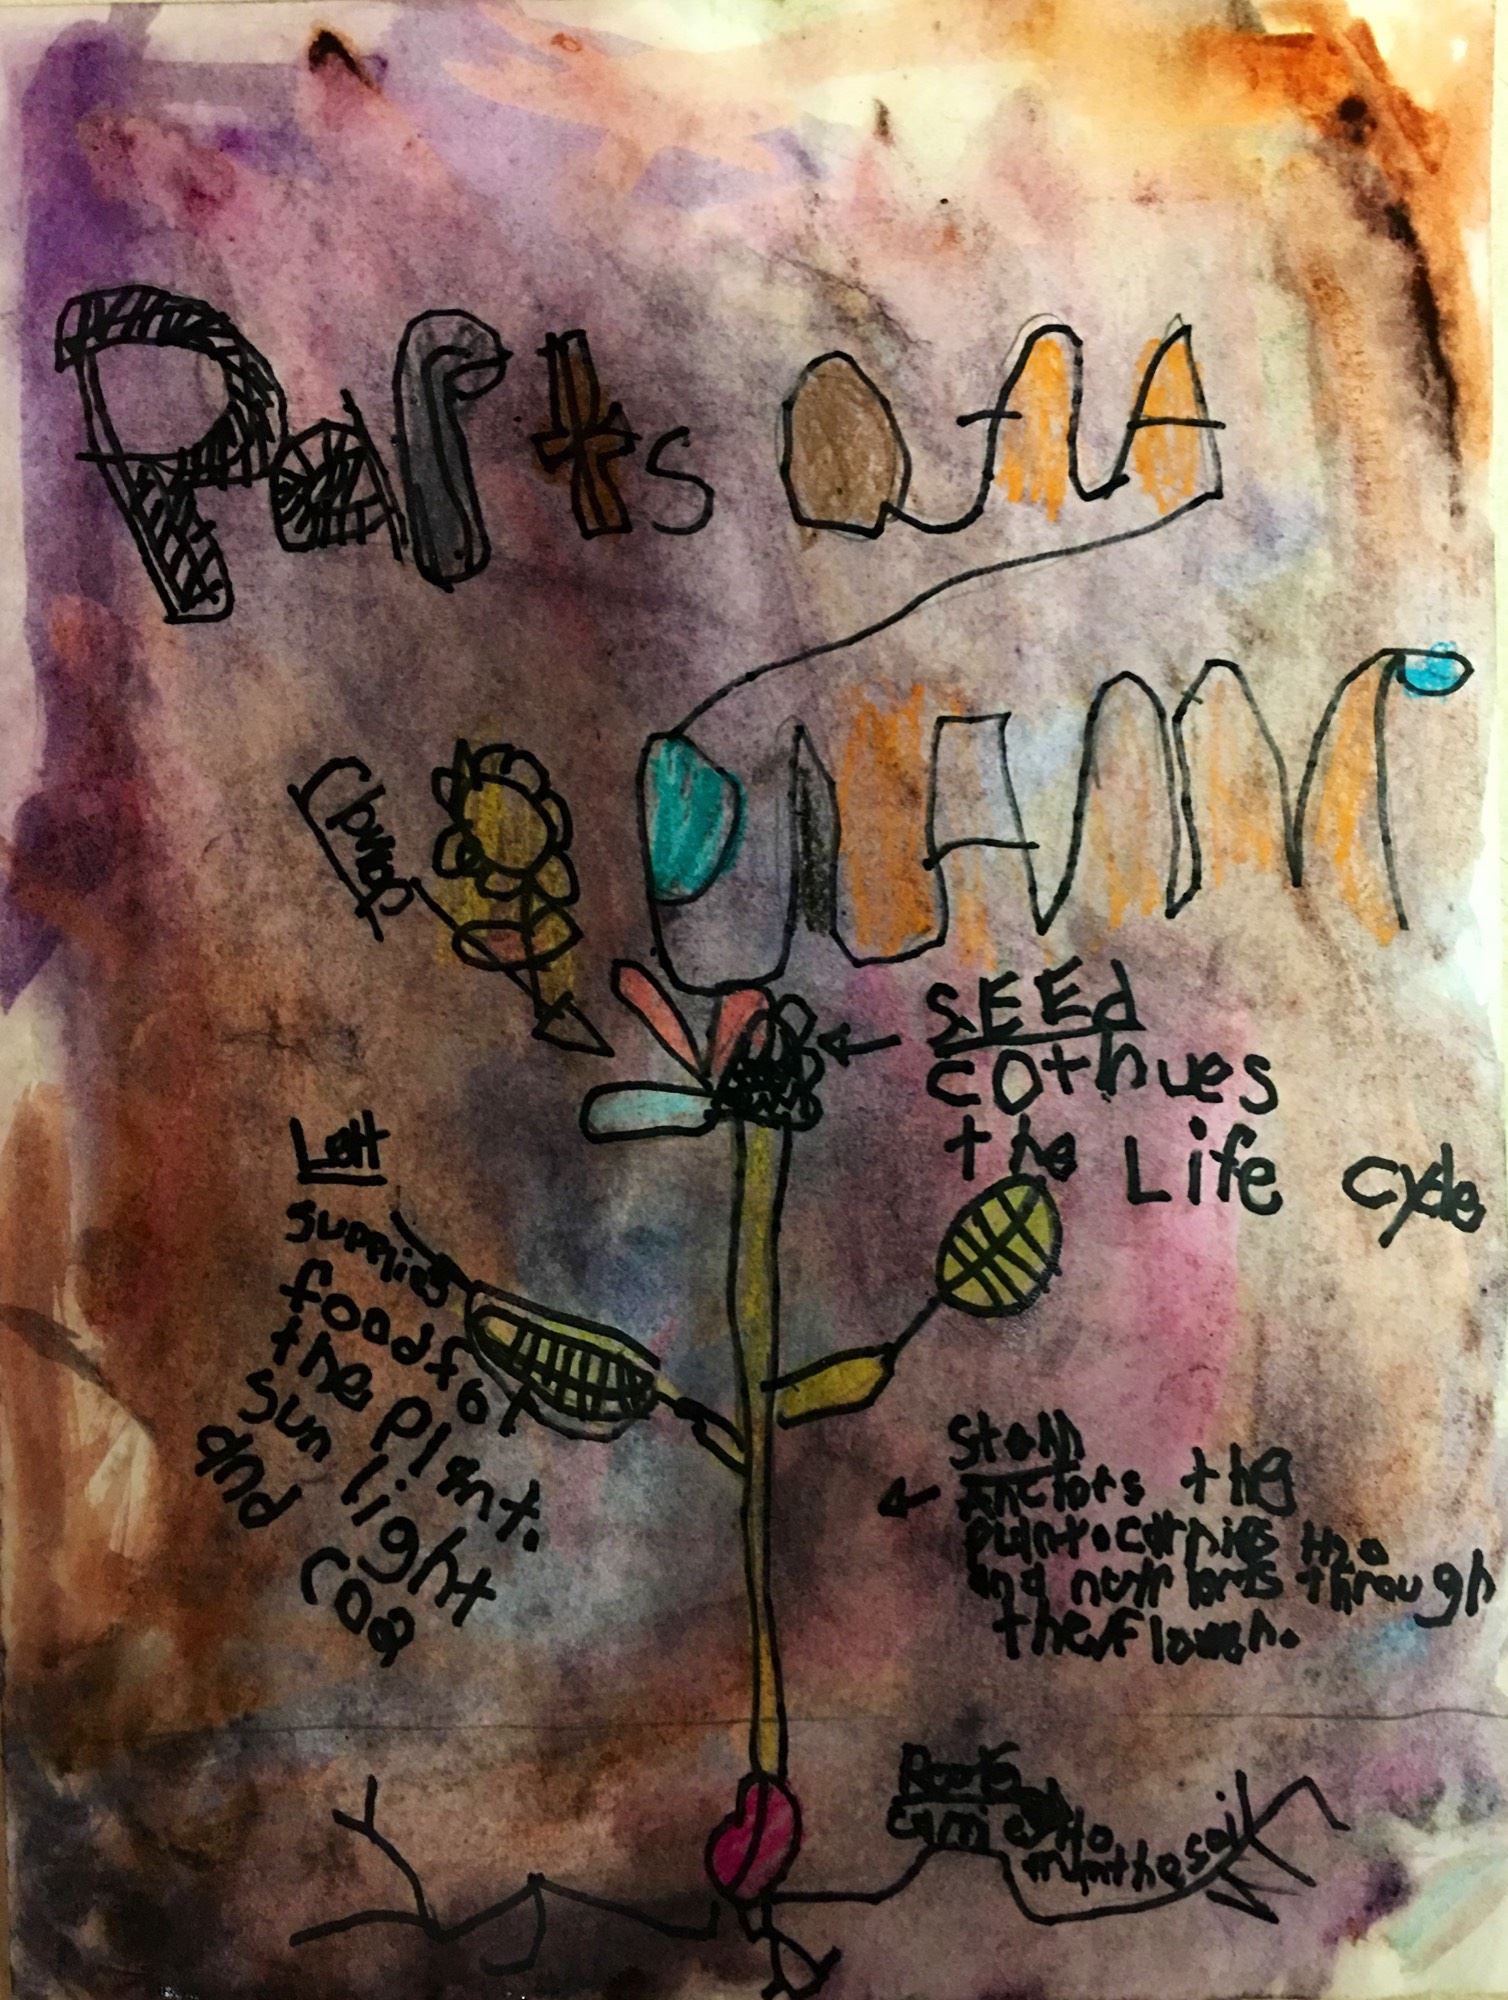 Parts of A
PlAnt
SEEd
cotnues
the Life cycle
Leff
supplies
food for
the plant.
sun light
and
co2
Stem
the
plant. carries H2O
and through
the flower.
Roots
carries H2o
from the soil